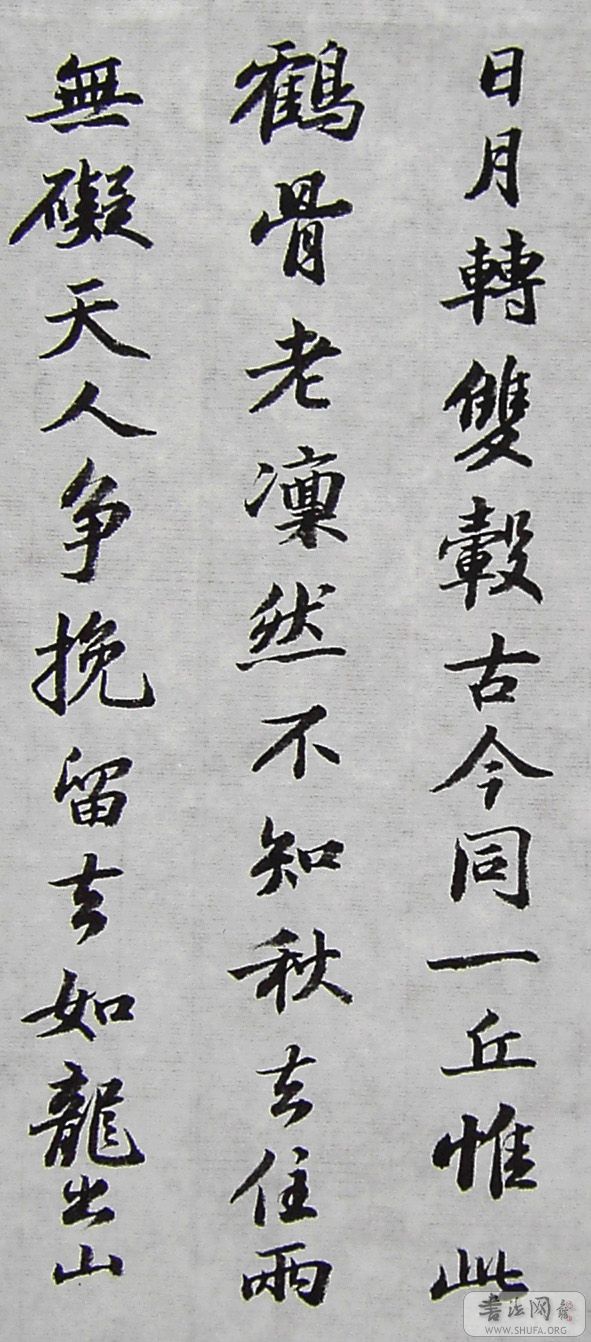 日月轉雙轂古今同一丘惟此
鶴骨老凜然不知秋去住兩
無礙天人争挽留去如龍出山
書法网
WWW.SHUFA.ORG